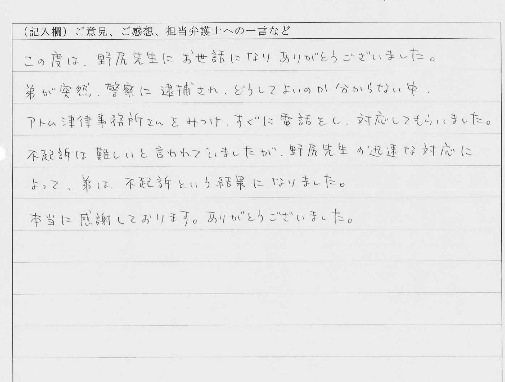 （記入欄）ご意見、ご感想、担当弁護士への一言など
この度は、野尻先生にお世話になりありがとうございました。
弟が突然、警察に逮捕され、どうしてよいのか分からない中、
アトム法律事務所さんをみつけ、すぐに電話をし、対応してもらいました。
不起訴は難しいと言われていましたが、野尻先生の迅速な対応に
よって、弟は、不起訴という結果になりました。
本当に感謝しております。ありがとうございました。